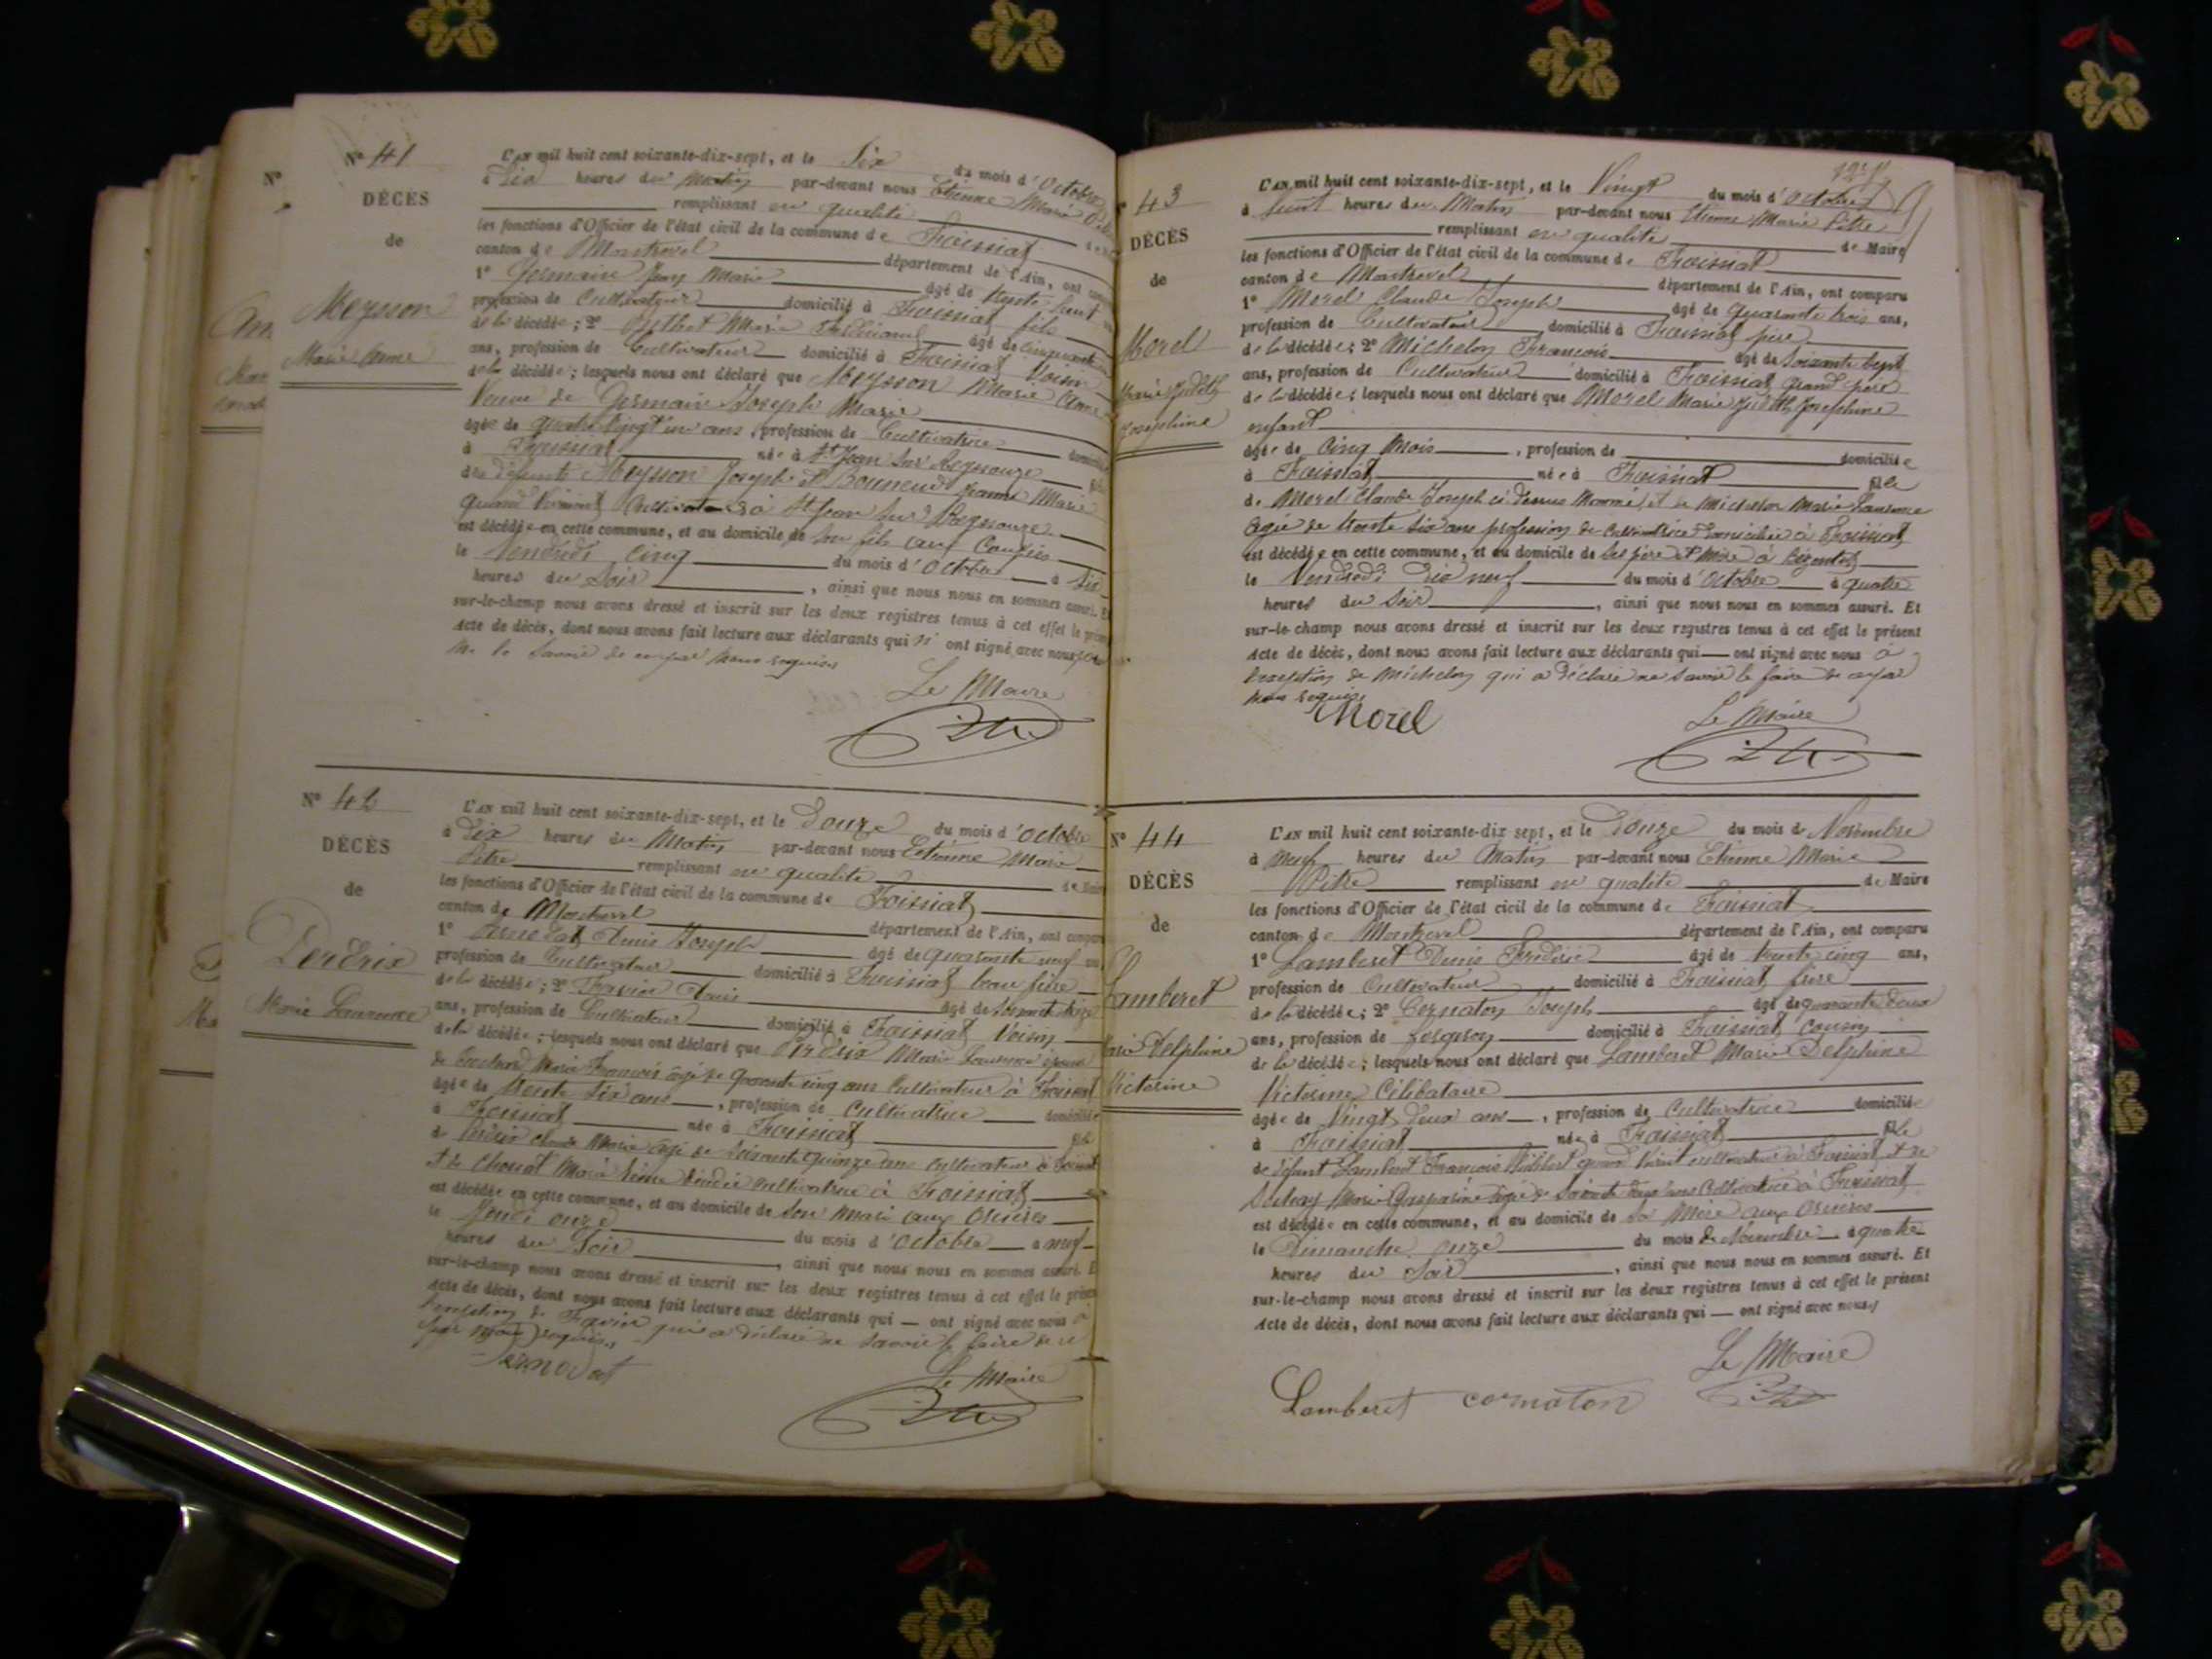 Nº 41
DÉCÈS
de
Meysson
Marie Anne
L'AN mil huit cent soixante-dix-sept, et le Six du mois d'Octobre
à Dix heures du Matin par-devant nous Etienne Marie
remplissant en qualité
les fonctions d'Officier de l'état civil de la commune de Foissiat
canton de Montrevel département de l'Ain, ont
1º Germain Jean Marie âgé de trente huit
profession de Cultivateur domicilié à Foissiat fils
de la décédée; 2º Marie âgé de cinquante
ans, profession de Cultivateur domicilié à Foissiat Voisin
de la décédée; lesquels nous ont déclaré que Meysson Marie Anne
Veuve de Germain Joseph Marie
âgée de quatre vingt un ans, profession de Cultivatrice
à Foissiat née à St Jean sur Reyssouze
des défunts Meysson Joseph et Jeanne Marie
quand vivaient Cultivateurs à St Jean sur Reyssouze
est décédée en cette commune, et au domicile de son fils aux
le Vendredi cinq du mois d'Octobre à six
heures du Soir, ainsi que nous nous en sommes assuré. Et
sur-le-champ nous avons dressé et inscrit sur les deux registres tenus à cet effet le
Acte de décès, dont nous avons fait lecture aux déclarants qui n'ont signé avec nous pour
ne le savoir de ce par nous requis
Le Maire
Nº 42
DÉCÈS
de
Perdrix
Marie Laurence
L'AN mil huit cent soixante-dix-sept, et le Douze du mois d'Octobre
à Dix heures du Matin par-devant nous Etienne Marie
Pitre remplissant en qualité
les fonctions d'Officier de l'état civil de la commune de Foissiat
canton de Montrevel département de l'Ain, ont
1º Denis Joseph âgé de quarante neuf
profession de Cultivateur domicilié à Foissiat beau frère
de la décédée; 2º Denis âgé de soixante
ans, profession de Cultivateur domicilié à Foissiat Voisin
de la décédée; lesquels nous ont déclaré que Perdrix Marie Laurence épouse
de Marie François âgé de quarante cinq ans Cultivateur à Foissiat
âgée de trente six ans, profession de Cultivatrice
à Foissiat née à Foissiat
de Perdrix Claude Marie âgé de soixante quinze ans Cultivateur à Foissiat
et de Chossat Marie décédée Cultivatrice à Foissiat
est décédée en cette commune, et au domicile de son Mari aux Orcières
le Jeudi onze du mois d'Octobre à neuf
heures du Soir, ainsi que nous nous en sommes assuré. E
sur-le-champ nous avons dressé et inscrit sur les deux registres tenus à cet effet le
Acte de décès, dont nous avons fait lecture aux déclarants qui — ont signé avec nous à
l'exception de qui a déclaré ne savoir le faire de ce
par nous requis
Le Maire
43
DÉCÈS
de
Morel
Marie Judith
Joséphine
L'AN mil huit cent soixante-dix-sept, et le Vingt du mois d'Octobre
à heures du Matin par-devant nous Etienne Marie Pitre
remplissant en qualité de Maire
les fonctions d'Officier de l'état civil de la commune de Foissiat
canton de Montrevel département de l'Ain, ont comparu
1º Morel Claude Joseph âgé de quarante trois ans,
profession de Cultivateur domicilié à Foissiat père
de la décédée; 2º Michelon François âgé de Soixante Sept
ans, profession de Cultivateur domicilié à Foissiat Grand père
de la décédée; lesquels nous ont déclaré que Morel Marie Judith Joséphine
enfant
âgée de Cinq Mois, profession de domiciliée
à Foissiat née à Foissiat fille
de Morel Claude Joseph ci dessus nommé, et de Michelon Marie Laurence
âgée de trente six ans profession de cultivatrice domiciliée à Foissiat
est décédée en cette commune, et au domicile de ses père et Mère à
le Vendredi Dix neuf du mois d'Octobre à quatre
heures du Soir, ainsi que nous nous en sommes assuré. Et
sur-le-champ nous avons dressé et inscrit sur les deux registres tenus à cet effet le présent
Acte de décès, dont nous avons fait lecture aux déclarants qui — ont signé avec nous à
l'exception de Michelon qui a déclaré ne savoir le faire de ce par
nous requis
Morel
Le Maire
Nº 44
DÉCÈS
de
Lamberet
Marie Delphine
Victorine
L'AN mil huit cent soixante-dix sept, et le Douze du mois de Novembre
à Neuf heures du Matin par-devant nous Etienne Marie
Pitre remplissant en qualité de Maire
les fonctions d'Officier de l'état civil de la commune de Foissiat
canton de Montrevel département de l'Ain, ont comparu
1º Lamberet Denis Frédéric âgé de trente cinq ans,
profession de Cultivateur domicilié à Foissiat frère
de la décédée; 2º Cornaton Joseph âgé de quarante deux
ans, profession de domicilié à Foissiat Cousin
de la décédée; lesquels nous ont déclaré que Lamberet Marie Delphine
Victorine Célibataire
âgée de Vingt deux ans, profession de Cultivatrice domiciliée
à Foissiat née à Foissiat fille
de défunt Lamberet François Philibert quand vivait cultivateur à Foissiat et de
Marie Gasparine âgée de soixante ans Cultivatrice à Foissiat
est décédée en cette commune, et au domicile de sa Mère aux Orcières
le Dimanche onze du mois de Novembre à quatre
heures du Soir, ainsi que nous nous en sommes assuré. Et
sur-le-champ nous avons dressé et inscrit sur les deux registres tenus à cet effet le présent
Acte de décès, dont nous avons fait lecture aux déclarants qui — ont signé avec nous
Le Maire
Lamberet cornaton